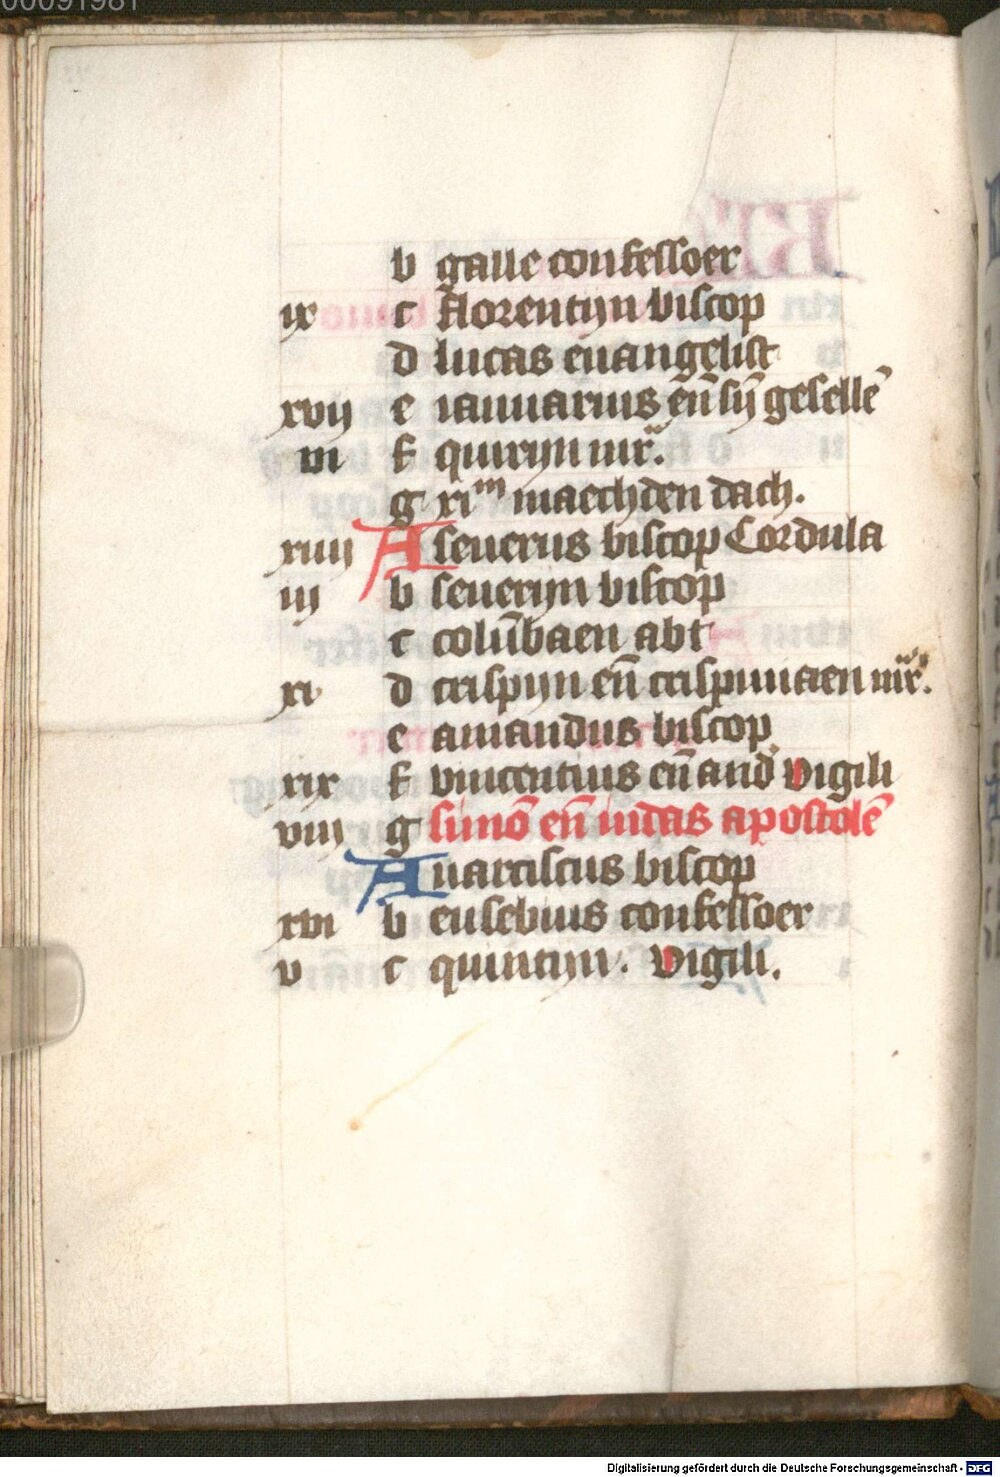 00091981
b galle confessoer
ix c florentijn biscop
d lucas euangelist
xvij e ianuarius eñ sỹ gesellē
vi f quirijn mr̄.
g xiᵐ maechden dach.
xiiij A seuerus biscop Cordula
iij b seuerijn biscop
c colūbaen abt
xi d crispijn eñ crispiniaen mr̄.
e amandus biscop
xix f vincentius eñ and' vigili
viij g simō eñ iudas apostolē
A narciscus biscop
xvi b eusebius confessoer
v c quintijn. vigili.
Digitalisierung gefördert durch die Deutsche Forschungsgemeinschaft - DFG